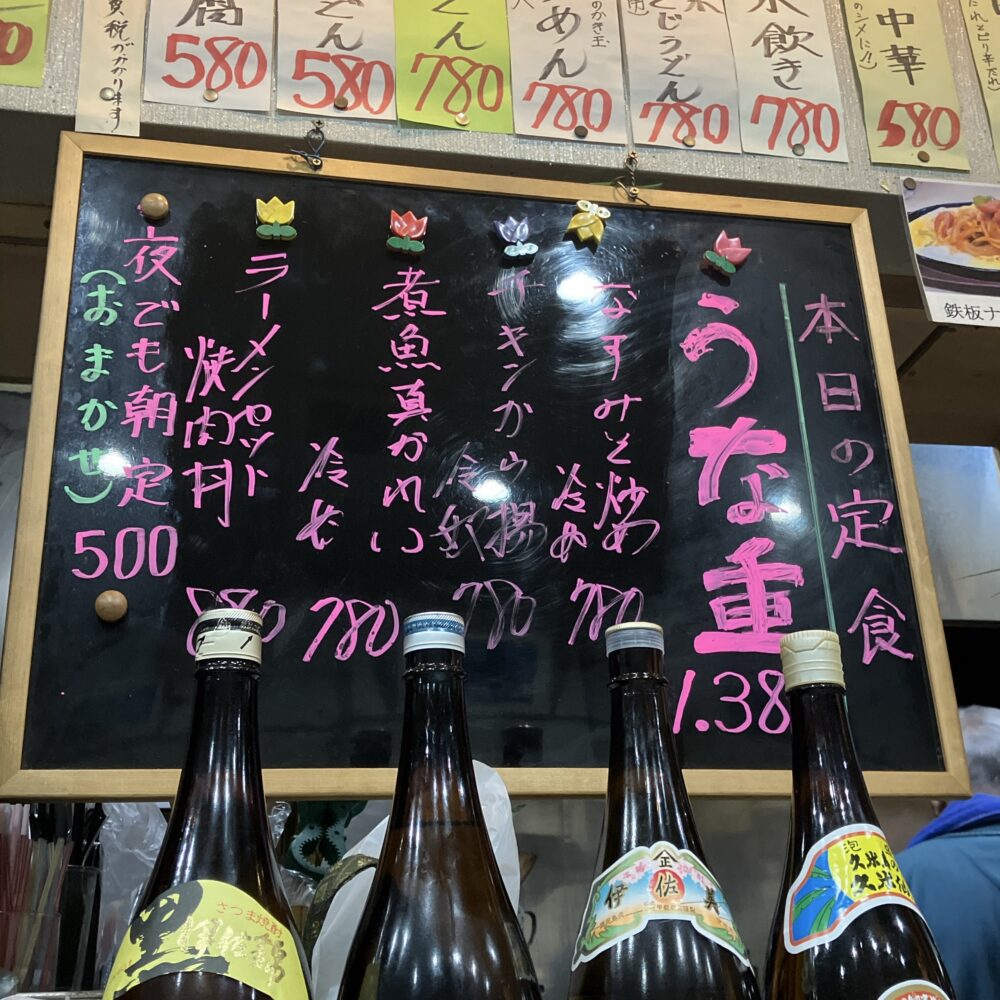 費税がかかります
580
どん
580
どん
780
のかき玉
めん
780
とじうどん
780
水飲き
780
のシメに!!
中華
580
本日の定食
うな重
1.38
なすみそ炒め
冷あ
780
チキンから揚
冷奴
780
煮魚真かれい
冷も
780
ラーメンセット
焼肉丼
880
夜でも朝定
(おまかせ)
500
鉄板ナ
さつま焼酎
黒伊佐錦
伊佐美
泡
久米島
久米仙